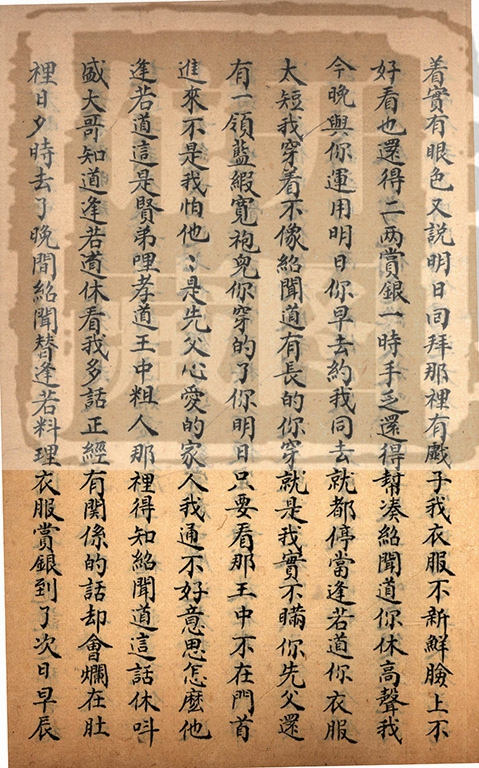 着實有眼色又説明日回拜那裡有戲子我衣服不新鮮臉上不
好看也還得二两賞銀一時手乏還得幫凑紹聞道你休高聲我
今晚與你運用明日你早去約我同去就都停當逢若道你衣服
太短我穿着不像紹聞道有長的你穿就是我實不瞞你先父還
有一領藍緞寬袍兒你穿的了你明日只要看那王中不在門首
進來不是我怕他〻是先父心愛的家人我通不好意思怎麼他
逢若道這是賢弟哩孝道王中粗人那裡得知紹聞道這話休呌
盛大哥知道逢若道休看我多話正經有関係的話却會爛在肚
裡日夕時去了晚間紹聞替逢若料理衣服賞銀到了次日早辰